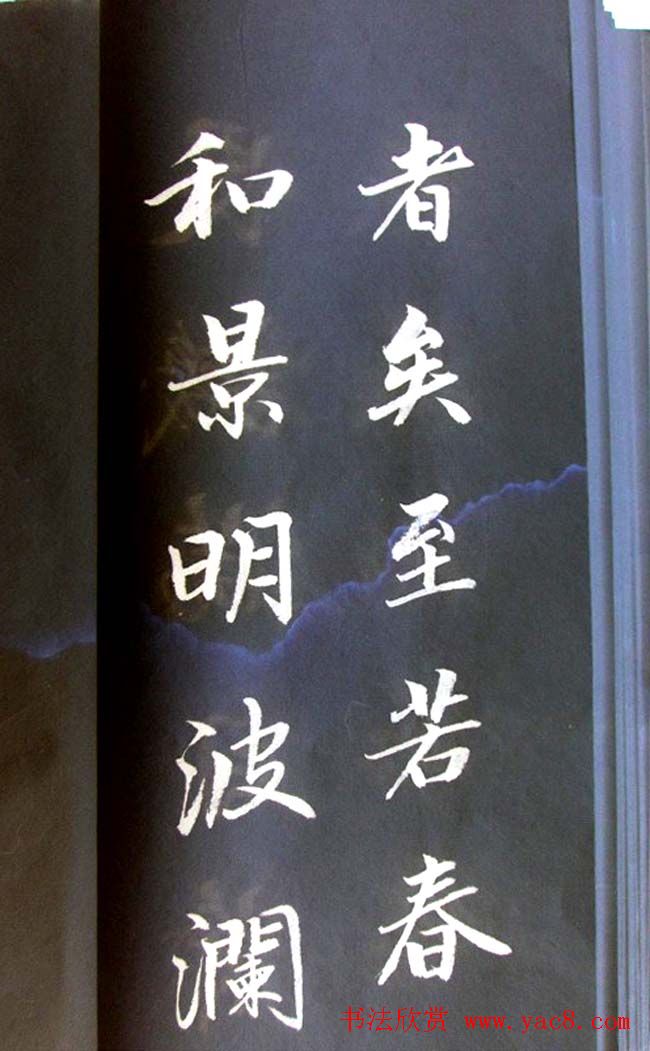 者矣至若春
和景明波澜
书法欣赏 www.yac8.com